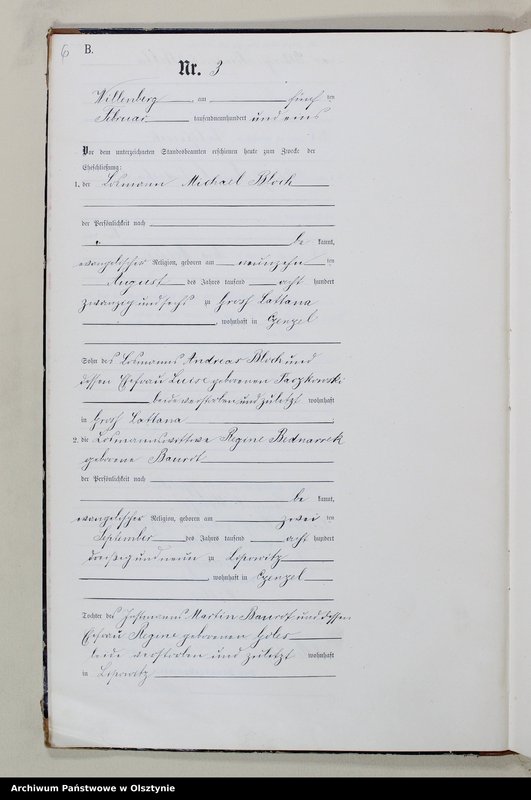 6
B.
Nr. 3
Willenberg, am fünf ten
Februar tausendneunhundert und eins
Vor dem unterzeichneten Standesbeamten erschienen heute zum Zwecke der
Eheschließung:
1. der Losmann Michael Bloch
der Persönlichkeit nach
be kannt,
evangelischer Religion, geboren am neunzehn ten
August des Jahres tausend acht hundert
zwanzig und sechs zu Groß Lattana
, wohnhaft in
Sohn des Losmanns Andreas Bloch und
dessen Ehefrau Luise geborenen
beide verstorben und zuletzt wohnhaft
in Groß Lattana
2. die Losmannswittwe Regine Bednarrek
geborene
der Persönlichkeit nach
be kannt,
evangelischer Religion, geboren am zwei ten
September des Jahres tausend acht hundert
dreißig und neun zu Lipowitz
, wohnhaft in
Tochter des Martin und dessen
Ehefrau Regine geborenen
beide verstorben und zuletzt wohnhaft
in Lipowitz
Archiwum Państwowe w Olsztynie